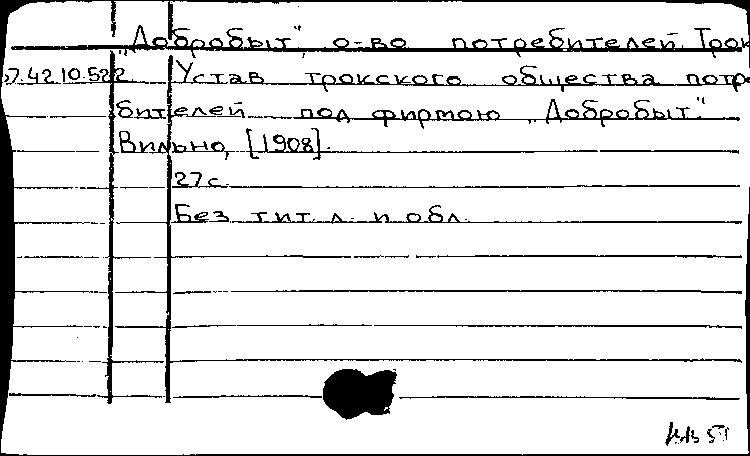 „Добробыт", о-во потребителей. Трок
57.42.10.522 Устав трокского общества потре
бителей под фирмою „Добробыт."
Вильно, [1908].
27 с.
Без тит. л. и обл.